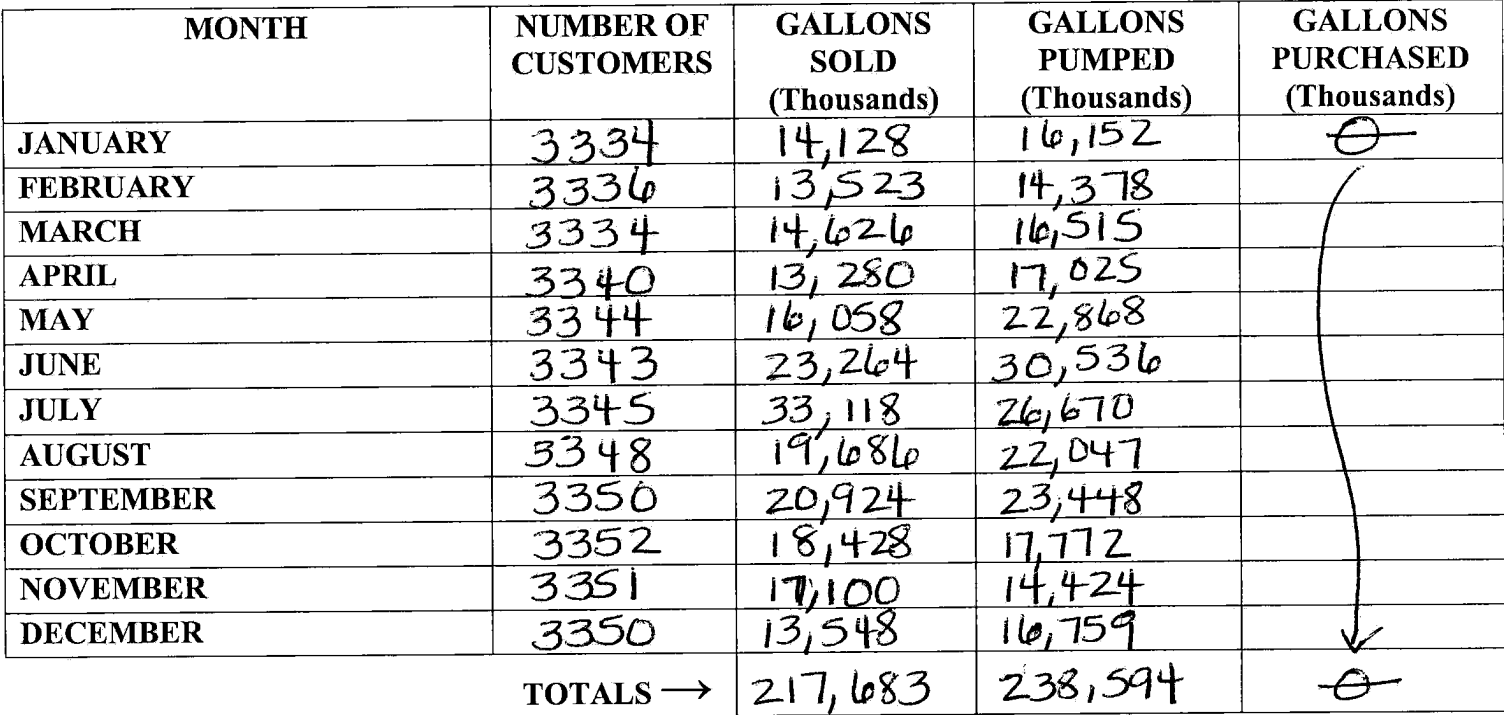 MONTH NUMBER OF CUSTOMERS GALLONS SOLD (Thousands) GALLONS PUMPED (Thousands) GALLONS PURCHASED (Thousands)
JANUARY 3334 14,128 16,152 0
FEBRUARY 3336 13,523 14,378
MARCH 3334 14,626 16,515
APRIL 3340 13,280 17,025
MAY 3344 16,058 22,868
JUNE 3343 23,264 30,536
JULY 3345 33,118 26,670
AUGUST 3348 19,686 22,047
SEPTEMBER 3350 20,924 23,448
OCTOBER 3352 18,428 17,772
NOVEMBER 3351 17,100 14,424
DECEMBER 3350 13,548 16,759
TOTALS → 217,683 238,594 0